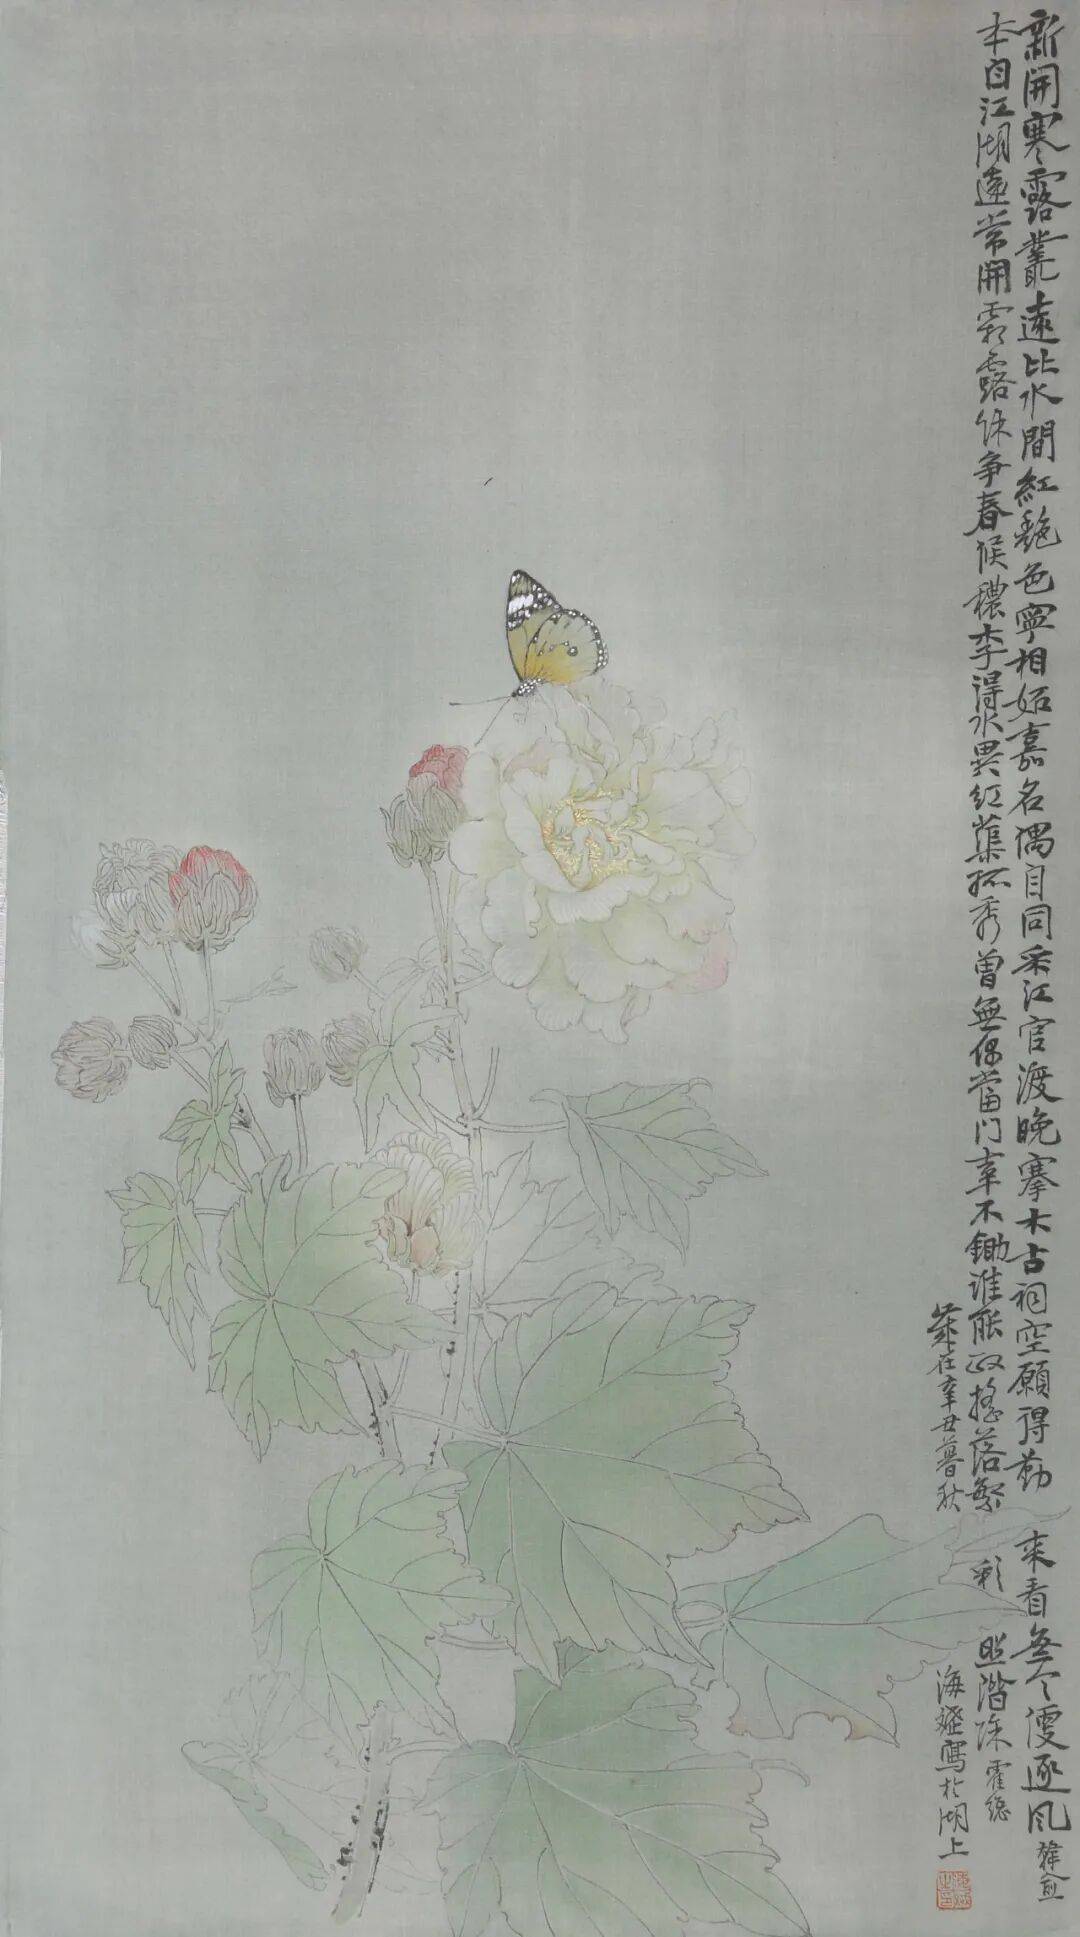 新開寒露叢遠比水間紅艷色寧相妬嘉名偶自同采江官渡晚搴木古祠空願得勤來看無令便逐風 韓愈
本自江湖遠常開霜露餘争春候穠李得水異紅蕖孤秀曾無偶當門幸不鋤誰能政搖落繁彩照階除 霍總
歲在辛丑暮秋海寫於湖上